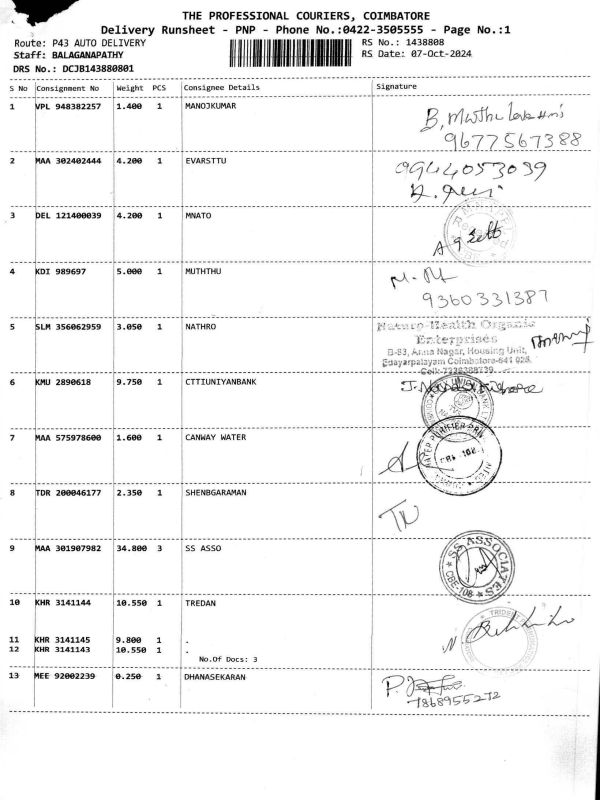 THE PROFESSIONAL COURIERS, COIMBATORE
Delivery Runsheet - PNP - Phone No.:0422-3505555 - Page No.:1
Route: P43 AUTO DELIVERY RS No.: 1438808
Staff: BALAGANAPATHY RS Date: 07-Oct-2024
DRS No.: DCJB143880801
S No Consignment No Weight PCS Consignee Details Signature
1 VPL 948382257 1.400 1 MANOJKUMAR
9677567388
2 MAA 302402444 4.200 1 EVARSTTU
9944053039
3 DEL 121400039 4.200 1 MNATO
4 KDI 989697 5.000 1 MUTHTHU
9360331387
5 SLM 356062959 3.050 1 NATHRO
Naturo-Health Organic
Enterprises
B-83, Anna Nagar, Housing Unit,
Edayarpalayam Coimbatore-641 025.
6 KMU 2890618 9.750 1 CTTIUNIYANBANK
7 MAA 575978600 1.600 1 CANWAY WATER
8 TDR 200046177 2.350 1 SHENBGARAMAN
9 MAA 301907982 34.800 3 SS ASSO
SS ASSOCIATES
CBE-108
10 KHR 3141144 10.550 1 TREDAN
11 KHR 3141145 9.800 1 .
12 KHR 3141143 10.550 1 .
No.Of Docs: 3
13 MEE 92002239 0.250 1 DHANASEKARAN
7868955272